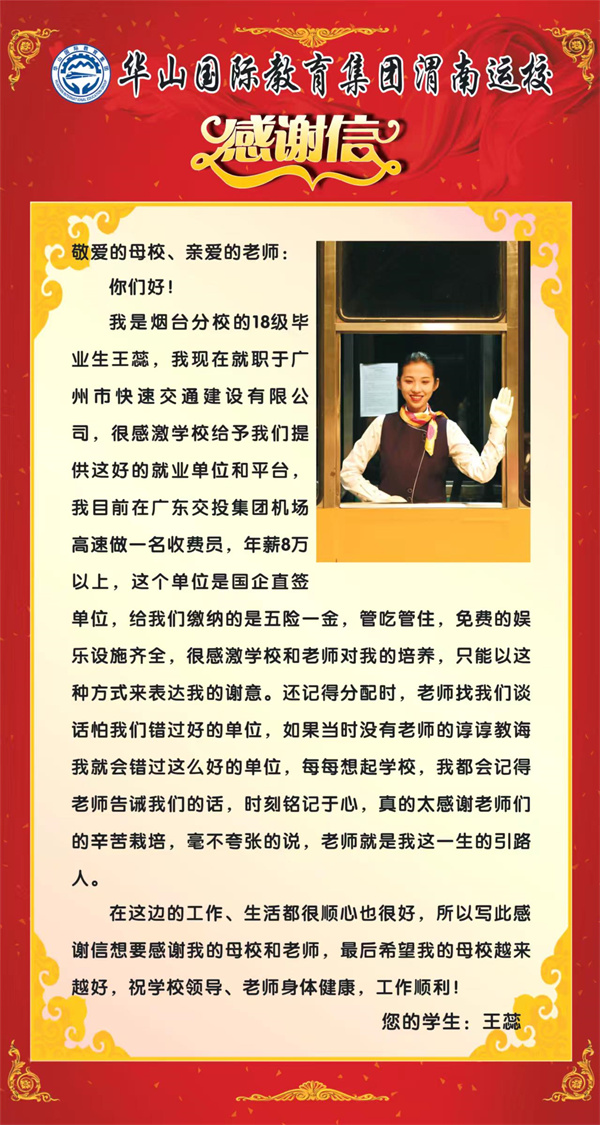 华山国际教育集团渭南运校
感谢信
敬爱的母校、亲爱的老师：
你们好！
我是烟台分校的18级毕
业生王蕊，我现在就职于广
州市快速交通建设有限公
司，很感激学校给予我们提
供这好的就业单位和平台，
我目前在广东交投集团机场
高速做一名收费员，年薪8万
以上，这个单位是国企直签
单位，给我们缴纳的是五险一金，管吃管住，免费的娱
乐设施齐全，很感激学校和老师对我的培养，只能以这
种方式来表达我的谢意。还记得分配时，老师找我们谈
话怕我们错过好的单位，如果当时没有老师的谆谆教诲
我就会错过这么好的单位，每每想起学校，我都会记得
老师告诫我们的话，时刻铭记于心，真的太感谢老师们
的辛苦栽培，毫不夸张的说，老师就是我这一生的引路
人。
在这边的工作、生活都很顺心也很好，所以写此感
谢信想要感谢我的母校和老师，最后希望我的母校越来
越好，祝学校领导、老师身体健康，工作顺利！
您的学生：王蕊